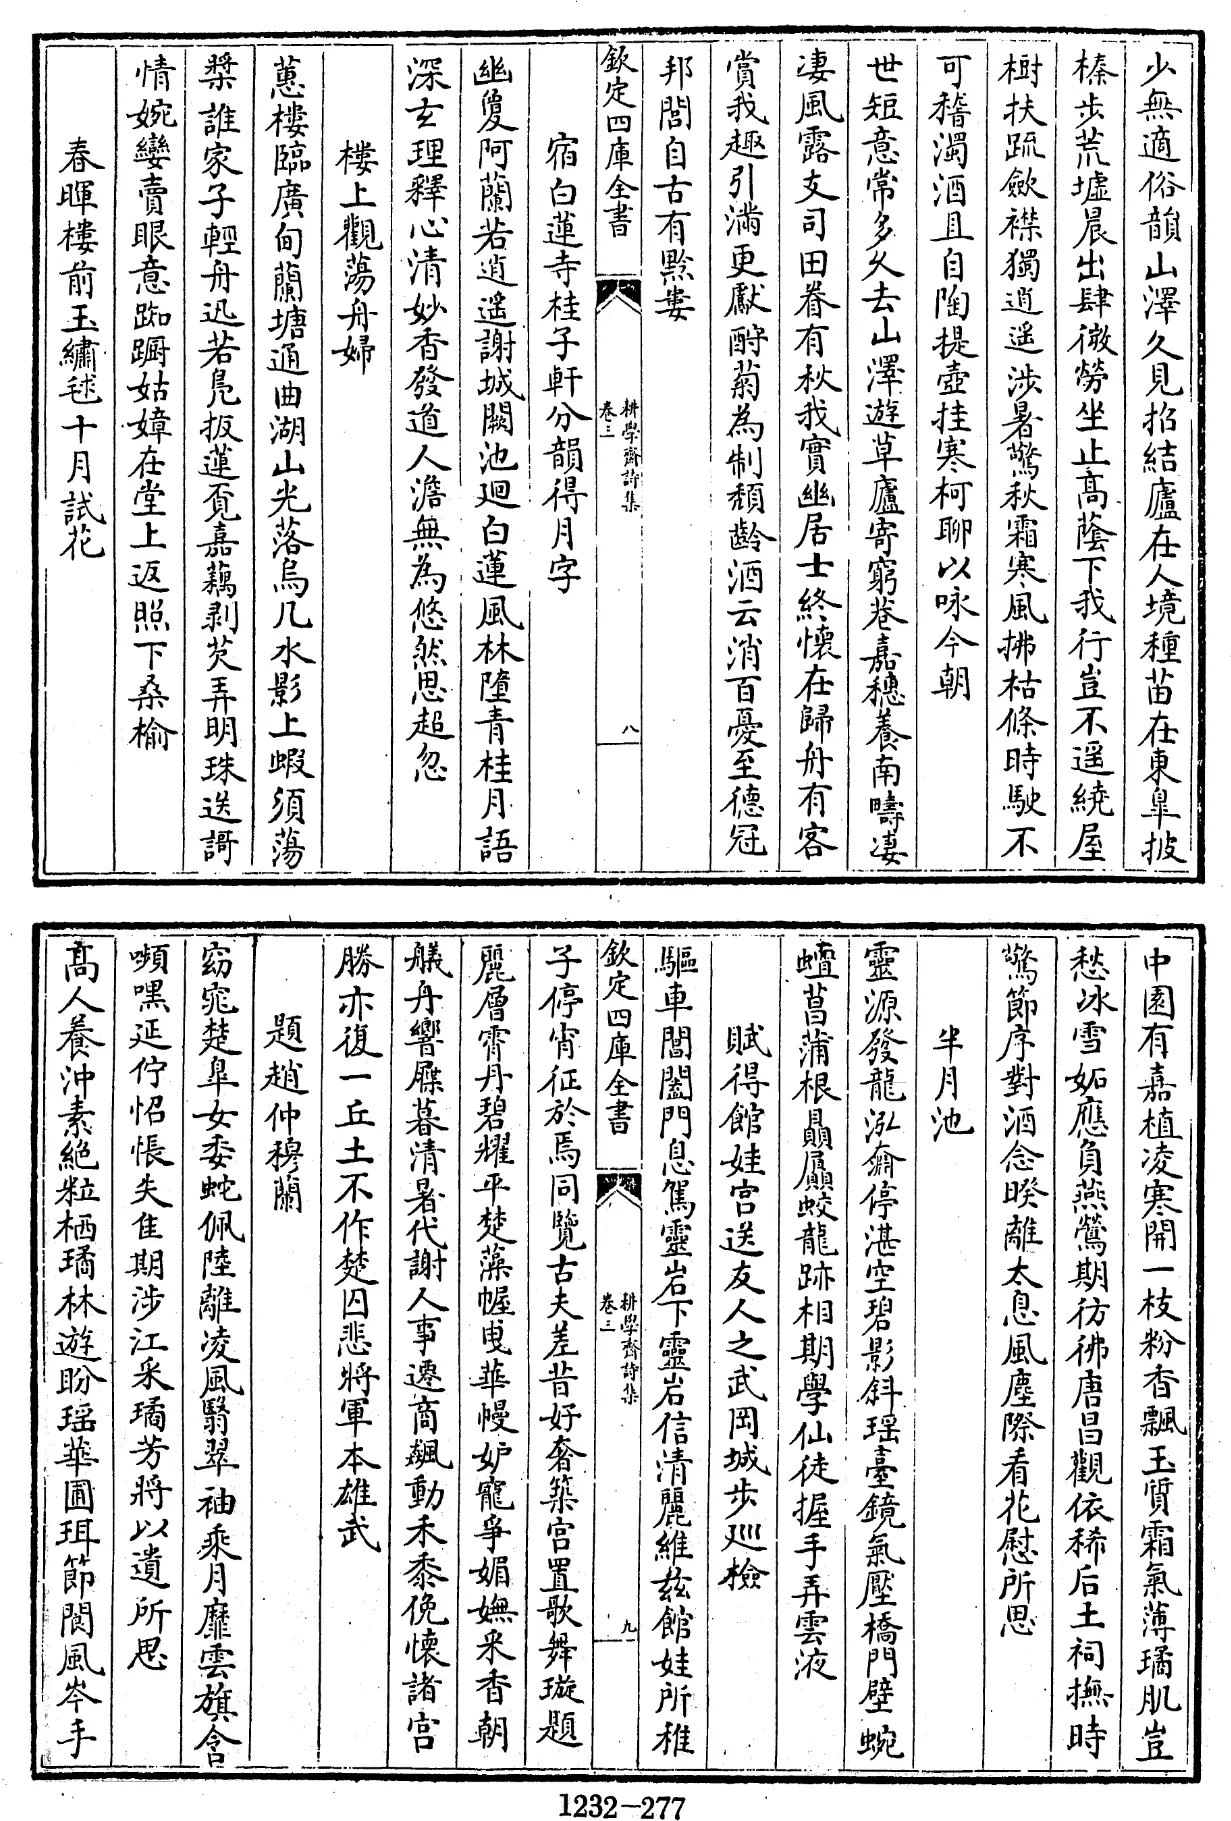 少無適俗韻山澤久見招結廬在人境種苗在東臯披
榛步荒墟晨出肆微勞坐止髙蔭下我行豈不遥繞屋
樹扶疏斂襟獨逍遥涉暑驚秋霜寒風拂枯條時駛不
可稽濁酒且自陶提壺挂寒柯聊以咏今朝
世短意常多久去山澤遊草廬寄窮巷嘉穗養南疇凄
凄風露交司田眷有秋我實幽居士終懷在歸舟有客
賞我趣引滿更獻酧菊為制頽齡酒云消百憂至德冠
邦閭自古有黔婁
欽定四庫全書
耕學齋詩集
卷三
八
宿白蓮寺桂子軒分韻得月字
幽敻阿蘭若逍遥謝城闕池迴白蓮風林墮青桂月語
深玄理釋心清妙香發道人澹無為悠然思超忽
樓上觀蕩舟婦
蕙樓臨廣甸蘭塘通曲湖山光落烏几水影上蝦須蕩
槳誰家子輕舟迅若鳬扳蓮覓嘉藕剥芡弄明珠送謌
情婉孌賣眼意踟蹰姑嫜在堂上返照下桑榆
春暉樓前玉繡毬十月試花
中園有嘉植凌寒開一枝粉香飄玉質霜氣薄璚肌豈
愁冰雪妬應負燕鶯期彷彿唐昌觀依稀后土祠撫時
驚節序對酒念暌離太息風塵際看花慰所思
半月池
靈源發龍泓奫停湛空碧影斜瑶臺鏡氣壓橋門壁蜿
蟺菖蒲根贔屭蛟龍跡相期學仙徒握手弄雲液
賦得館娃宫送友人之武岡城步巡檢
驅車閶闔門息駕靈岩下靈岩信清麗維兹館娃所稚
欽定四庫全書
耕學齋詩集
卷三
九
子停宵征於焉同覽古夫差昔好奢築宫置歌舞璇題
麗層霄丹碧耀平楚藻幄曵華幔妒寵爭媚嫵采香朝
艤舟響屧暮清暑代謝人事遷商飆動禾黍俛懷諸宫
勝亦復一丘土不作楚囚悲將軍本雄武
題趙仲穆蘭
窈窕楚臯女委蛇佩陸離凌風翳翠袖乘月靡雲旗含
嚬嘿延佇怊悵失隹期涉江采璚芳將以遺所思
髙人養沖素絶粒栖璚林遊盼瑶華圃珥節閬風岑手
1232-277